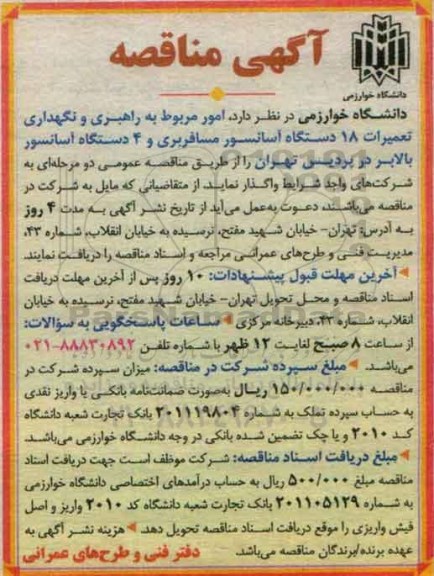 آگهی مناقصه
دانشگاه خوارزمی
دانشگاه خوارزمی در نظر دارد، امور مربوط به راهبری و نگهداری
تعمیرات ۱۸ دستگاه آسانسور مسافربری و ۴ دستگاه آسانسور
بالابر در پردیس تهران را از طریق مناقصه عمومی دو مرحله‌ای به
شرکت‌های واجد شرایط واگذار نماید. از متقاضیانی که مایل به شرکت در
مناقصه می‌باشند، دعوت به‌عمل می‌آید از تاریخ نشر آگهی به مدت ۴ روز
به آدرس: تهران- خیابان شهید مفتح، نرسیده به خیابان انقلاب، شماره ۴۳،
مدیریت فنی و طرح‌های عمرانی مراجعه و اسناد مناقصه را دریافت نمایند.
آخرین مهلت قبول پیشنهادات: ۱۰ روز پس از آخرین مهلت دریافت
اسناد مناقصه و محل تحویل تهران- خیابان شهید مفتح، نرسیده به خیابان
انقلاب، شماره ۴۳، دبیرخانه مرکزی ساعات پاسخگویی به سؤالات:
از ساعت ۸ صبح لغایت ۱۲ ظهر با شماره تلفن ۸۸۸۳۰۸۹۲-۰۲۱
می‌باشد. مبلغ سپرده شرکت در مناقصه: میزان سپرده شرکت در
مناقصه ۱۵۰/۰۰۰/۰۰۰ ریال به‌صورت ضمانت‌نامه بانکی یا واریز نقدی
به حساب سپرده تملک به شماره ۲۰۱۱۱۹۸۰۴ بانک تجارت شعبه دانشگاه
کد ۲۰۱۰ و یا چک تضمین شده بانکی در وجه دانشگاه خوارزمی می‌باشد.
مبلغ دریافت اسناد مناقصه: شرکت موظف است جهت دریافت اسناد
مناقصه مبلغ ۵۰۰/۰۰۰ ریال به حساب درآمدهای اختصاصی دانشگاه خوارزمی
به شماره ۲۰۱۱۰۵۱۲۹ بانک تجارت شعبه دانشگاه کد ۲۰۱۰ واریز و اصل
فیش واریزی را موقع دریافت اسناد مناقصه تحویل دهد. هزینه نشر آگهی به
عهده برنده/برندگان مناقصه می‌باشد.
دفتر فنی و طرح‌های عمرانی